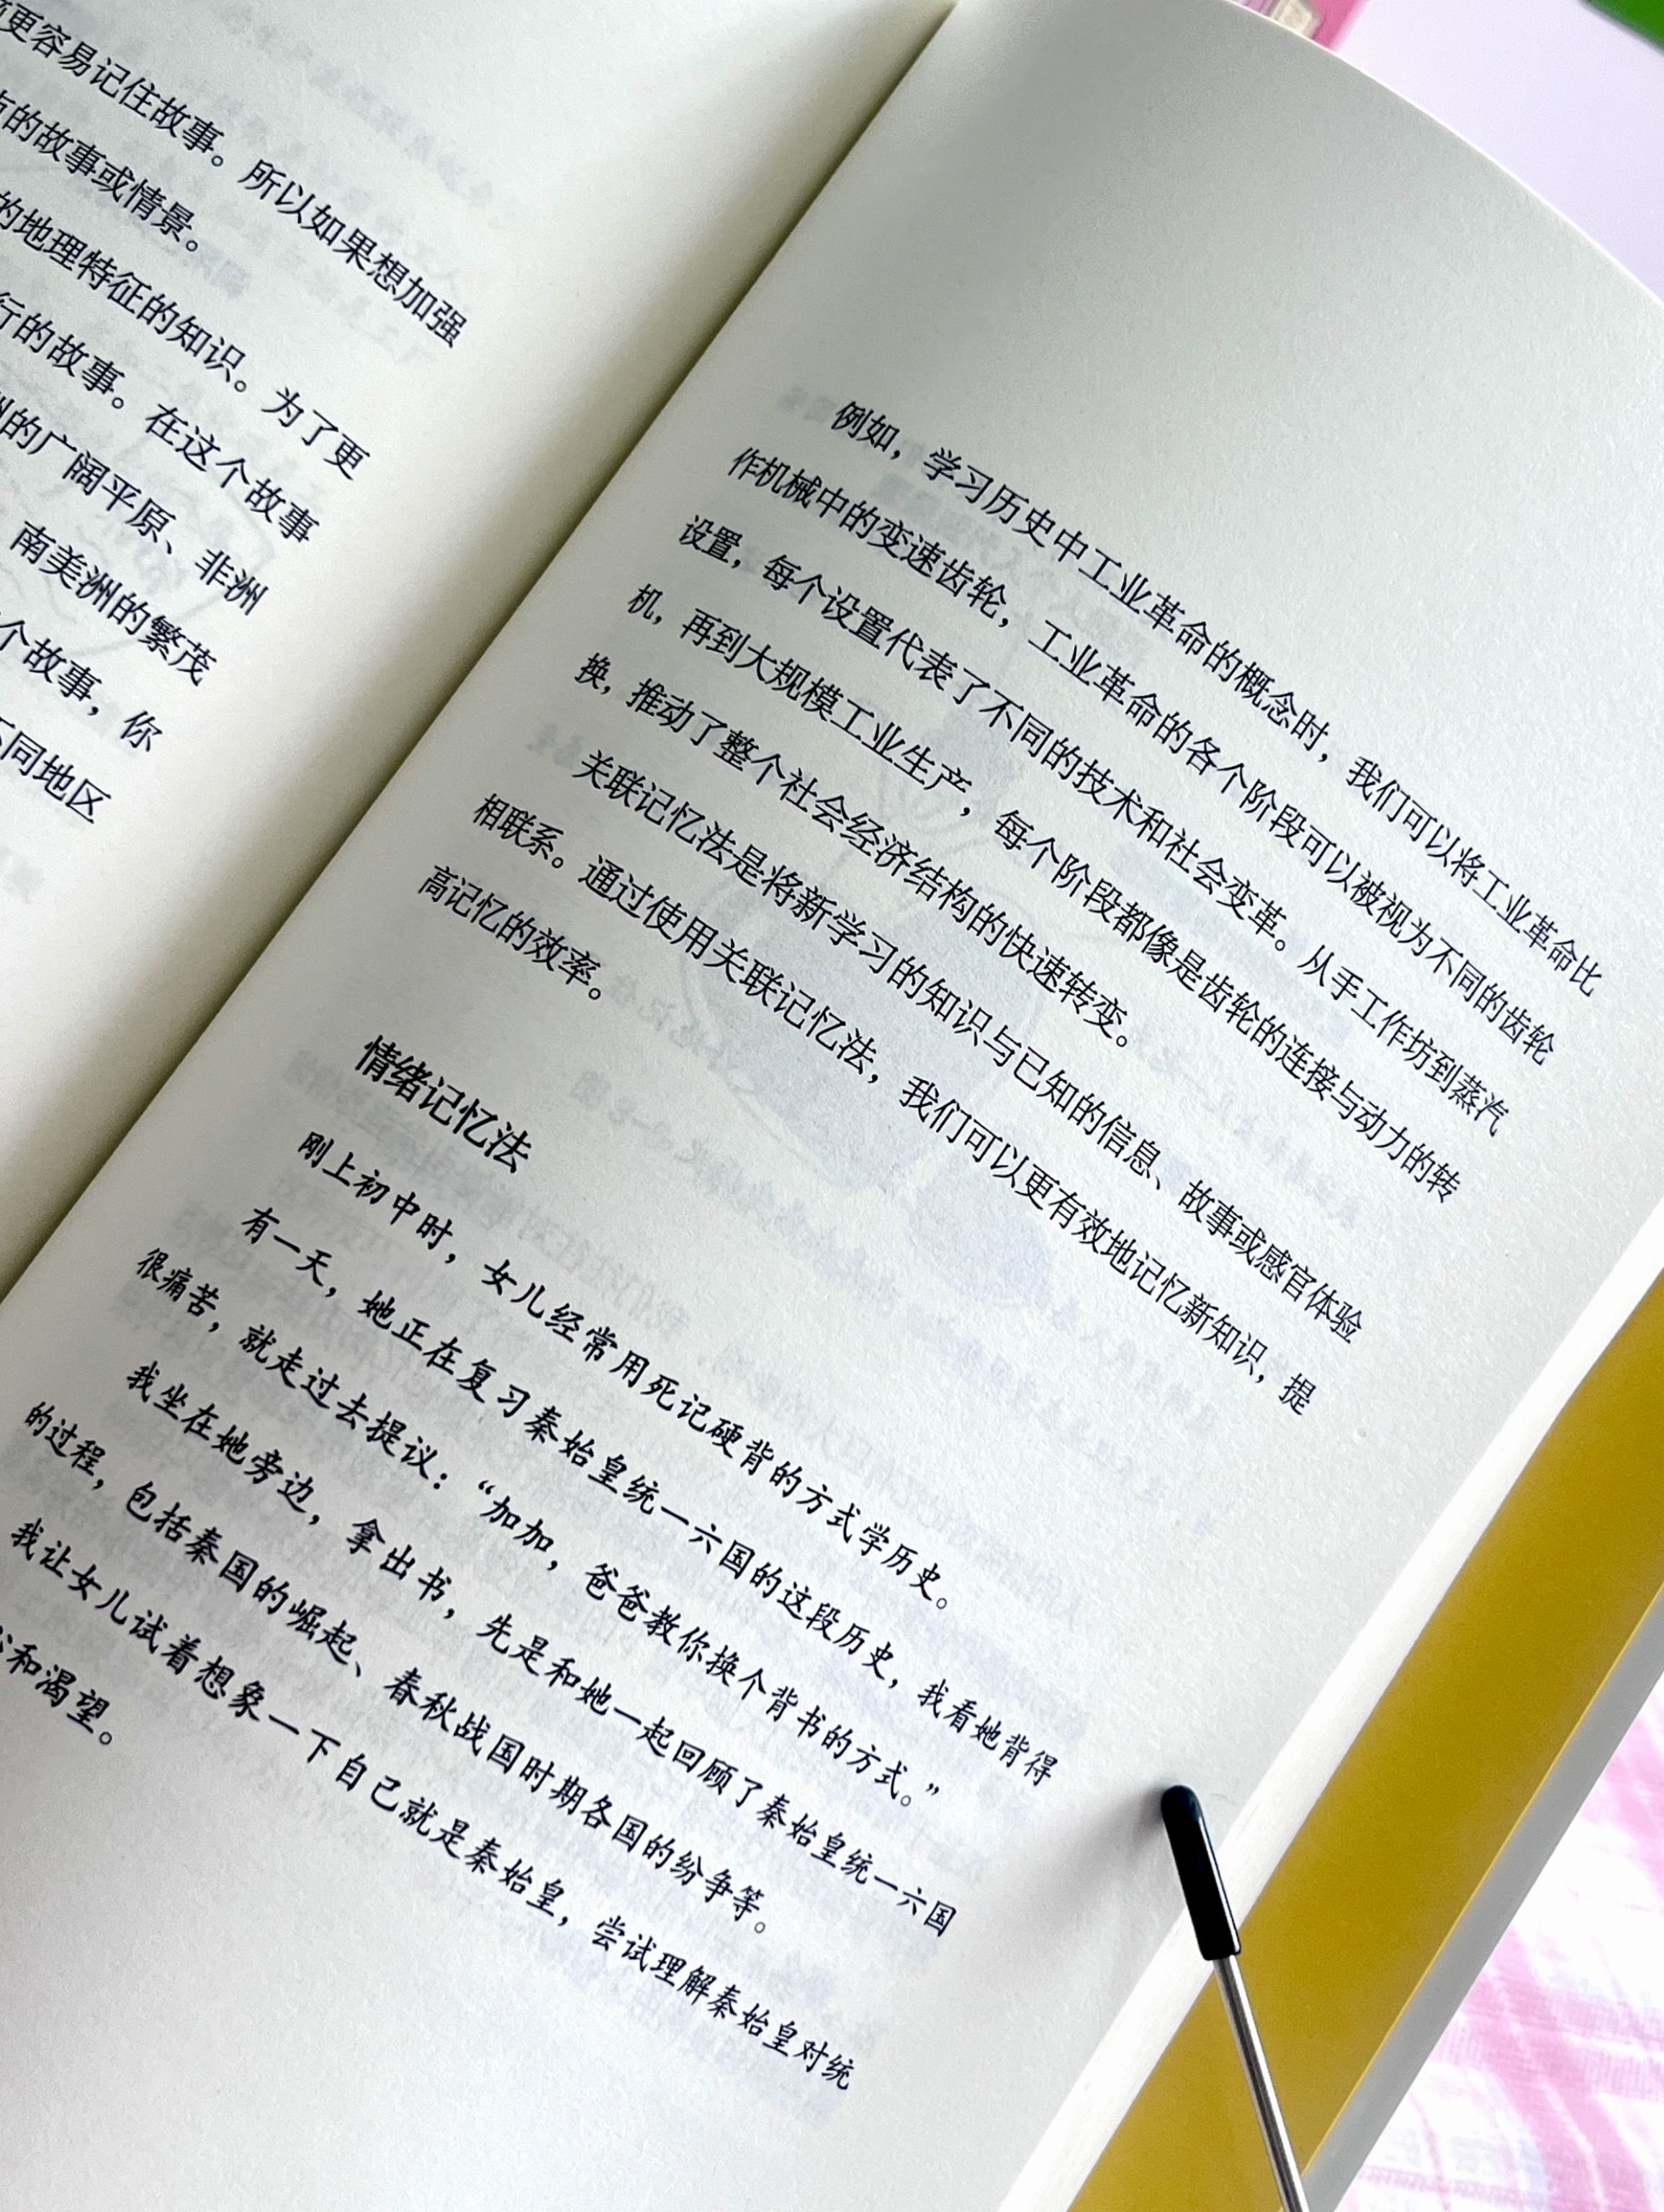 更容易记住故事。所以如果想加强
的故事或情景。
的地理特征的知识。为了更
行的故事。在这个故事
的广阔平原、非洲
南美洲的繁茂
个故事，你
不同地区
例如，学习历史中工业革命的概念时，我们可以将工业革命比
作机械中的变速齿轮，工业革命的各个阶段可以被视为不同的齿轮
设置，每个设置代表了不同的技术和社会变革。从手工作坊到蒸汽
机，再到大规模工业生产，每个阶段都像是齿轮的连接与动力的转
换，推动了整个社会经济结构的快速转变。
关联记忆法是将新学习的知识与已知的信息、故事或感官体验
相联系。通过使用关联记忆法，我们可以更有效地记忆新知识，提
高记忆的效率。
情绪记忆法
刚上初中时，女儿经常用死记硬背的方式学历史。
有一天，她正在复习秦始皇统一六国的这段历史，我看她背得
很痛苦，就走过去提议：“加加，爸爸教你换个背书的方式。”
我坐在她旁边，拿出书，先是和她一起回顾了秦始皇统一六国
的过程，包括秦国的崛起、春秋战国时期各国的纷争等。
我让女儿试着想象一下自己就是秦始皇，尝试理解秦始皇对统
和渴望。